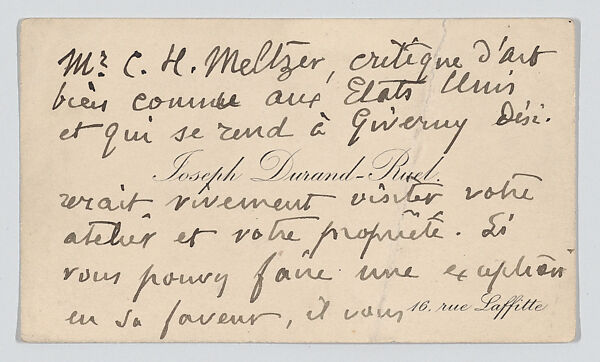 Mr. C. H. Meltzer, critique d'art
bien connu aux Etats Unis
et qui se rend à Giverny dési-
Joseph Durand-Ruel.
rerait vivement visiter votre
atelier et votre propriété. Si
vous pouvez faire une exception
en sa faveur, il vous
16, rue Laffitte